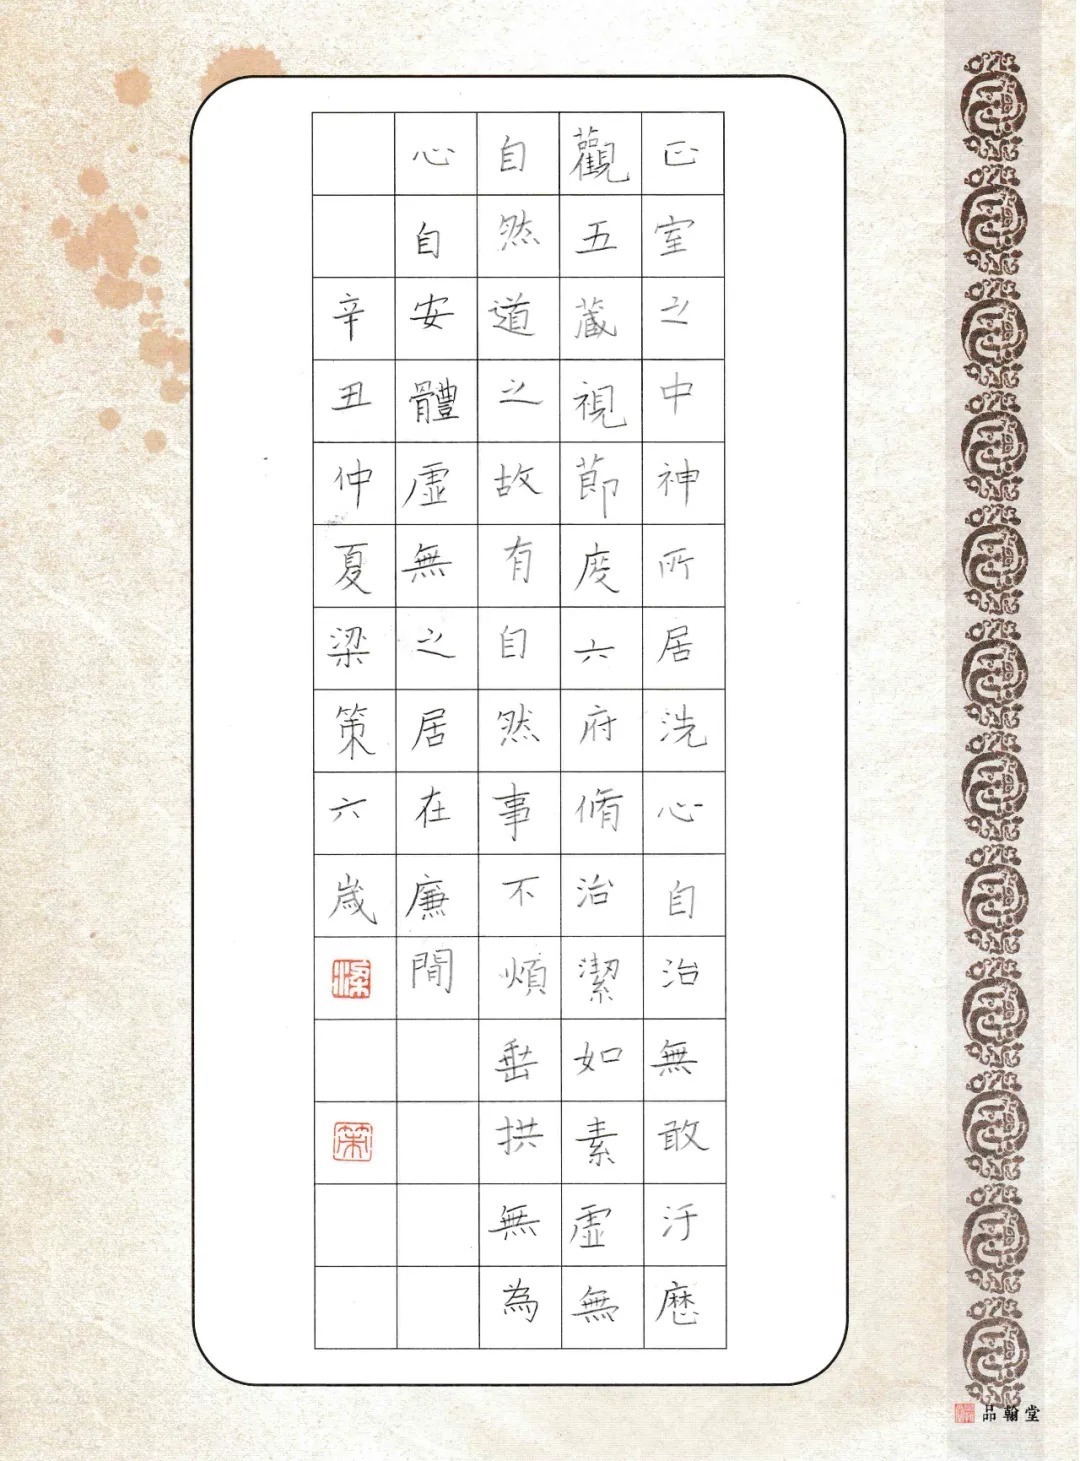 正室之中神所居洗心自治無敢汙歷
觀五藏視節度六府脩治潔如素虛無
自然道之故有自然事不煩垂拱無為
心自安體虛無之居在廉間
辛丑仲夏梁策六歲
梁
策
品翰堂